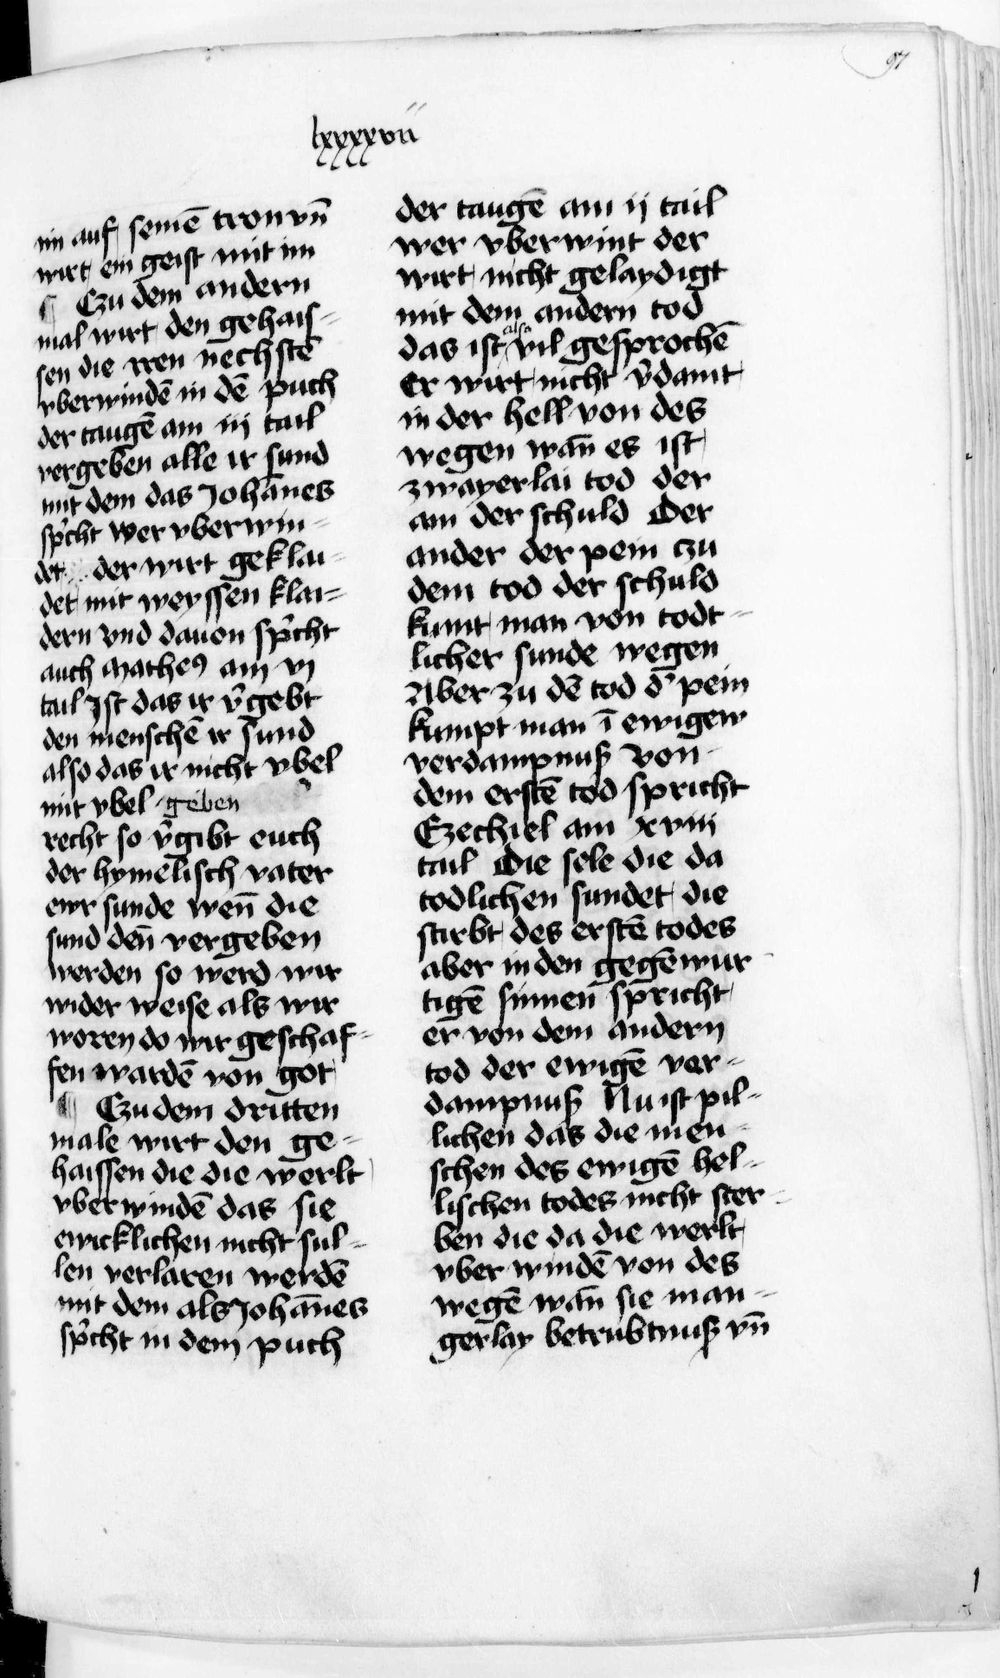 97
lxxxxvii
im auf seinē tron vn̄
wirt ein geist mit im
¶ Czu dem andern
mal wirt den gehais-
sen die iren nechstē
vberwindē in dē puch
der taugē am iij tail
vergeben alle ir sund
mit dem das Johan̄es
sp̄cht wer vberwin-
det der wirt geklai-
det mit weyssen klai-
dern vnd dauon sp̄cht
auch Matheꝰ am vj
tail Ist das ir v̄gebt
den menschē ir sund
also das ir nicht vbel
mit vbel geben
recht so v̄gibt euch
der hymelisch vater
ewr sunde wen̄ die
sund den̄ vergeben
werden so werd wir
wider weise als wir
woren do wir geschaf-
fen wardē von got
¶ Czu dem dritten
male wirt den ge-
haissen die die werlt
vberwindē das sie
ewicklichen nicht sul-
len verlaren werdē
mit dem als Johan̄es
sp̄cht in dem puch
der taugē am ij tail
wer vberwint der
wirt nicht gelaydigt
mit dem andern tod
das ist also vil gesprochē
Er wirt nicht v̄damt
in der hell von des
wegen wan̄ es ist
zwayerlai tod der
am der schuld Der
ander der pein czu
dem tod der schuld
kumt man von todt-
licher sunde wegen
Aber zu dē tod d̄ pein
kumpt man ī ewigew
verdampnuß von
dem erstē tod spricht
Ezechiel am xviii
tail Die sele die da
todlichen sundet die
stirbt des erstē todes
aber in den gegēwur
tigē sinnen spricht
er von dem andern
tod der ewigē ver-
dampnuß Nu ist pil-
lichen das die men-
schen des ewigē hel-
lischen todes nicht ster-
ben die da die werlt
vber windē von des
wegē wan̄ sie man-
gerlay betrubtnuß vn̄